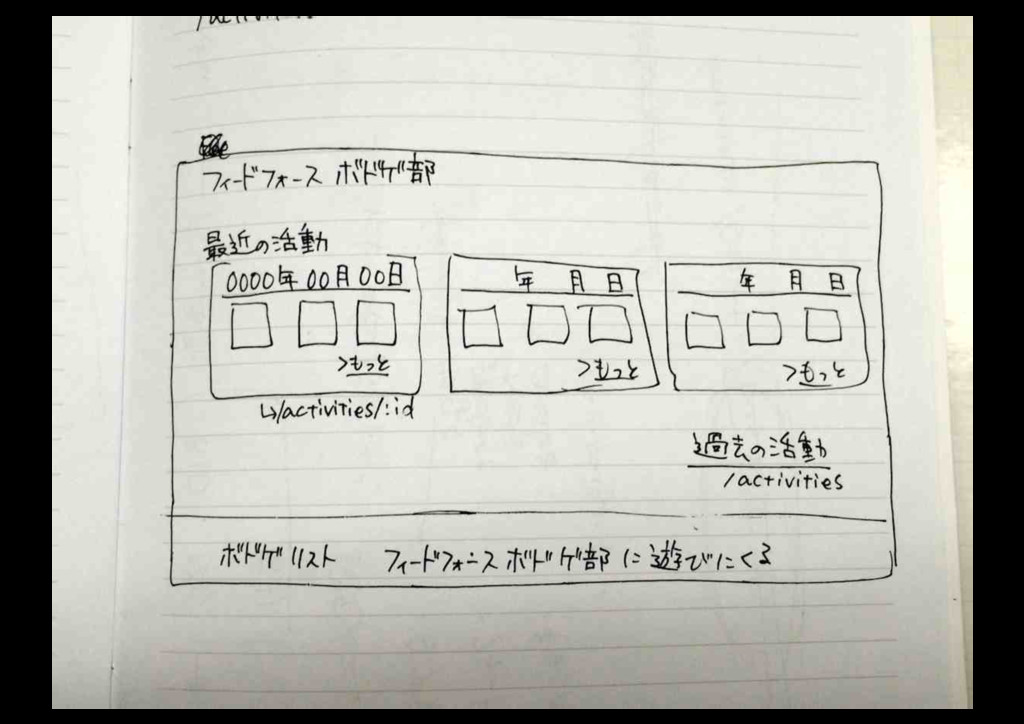 フィードフォース ボドゲ部
最近の活動
0000年00月00日
年 月 日
年 月 日
>もっと
>もっと
>もっと
↳/activities/:id
過去の活動
/activities
ボドゲリスト フィードフォースボドゲ部に遊びにくる